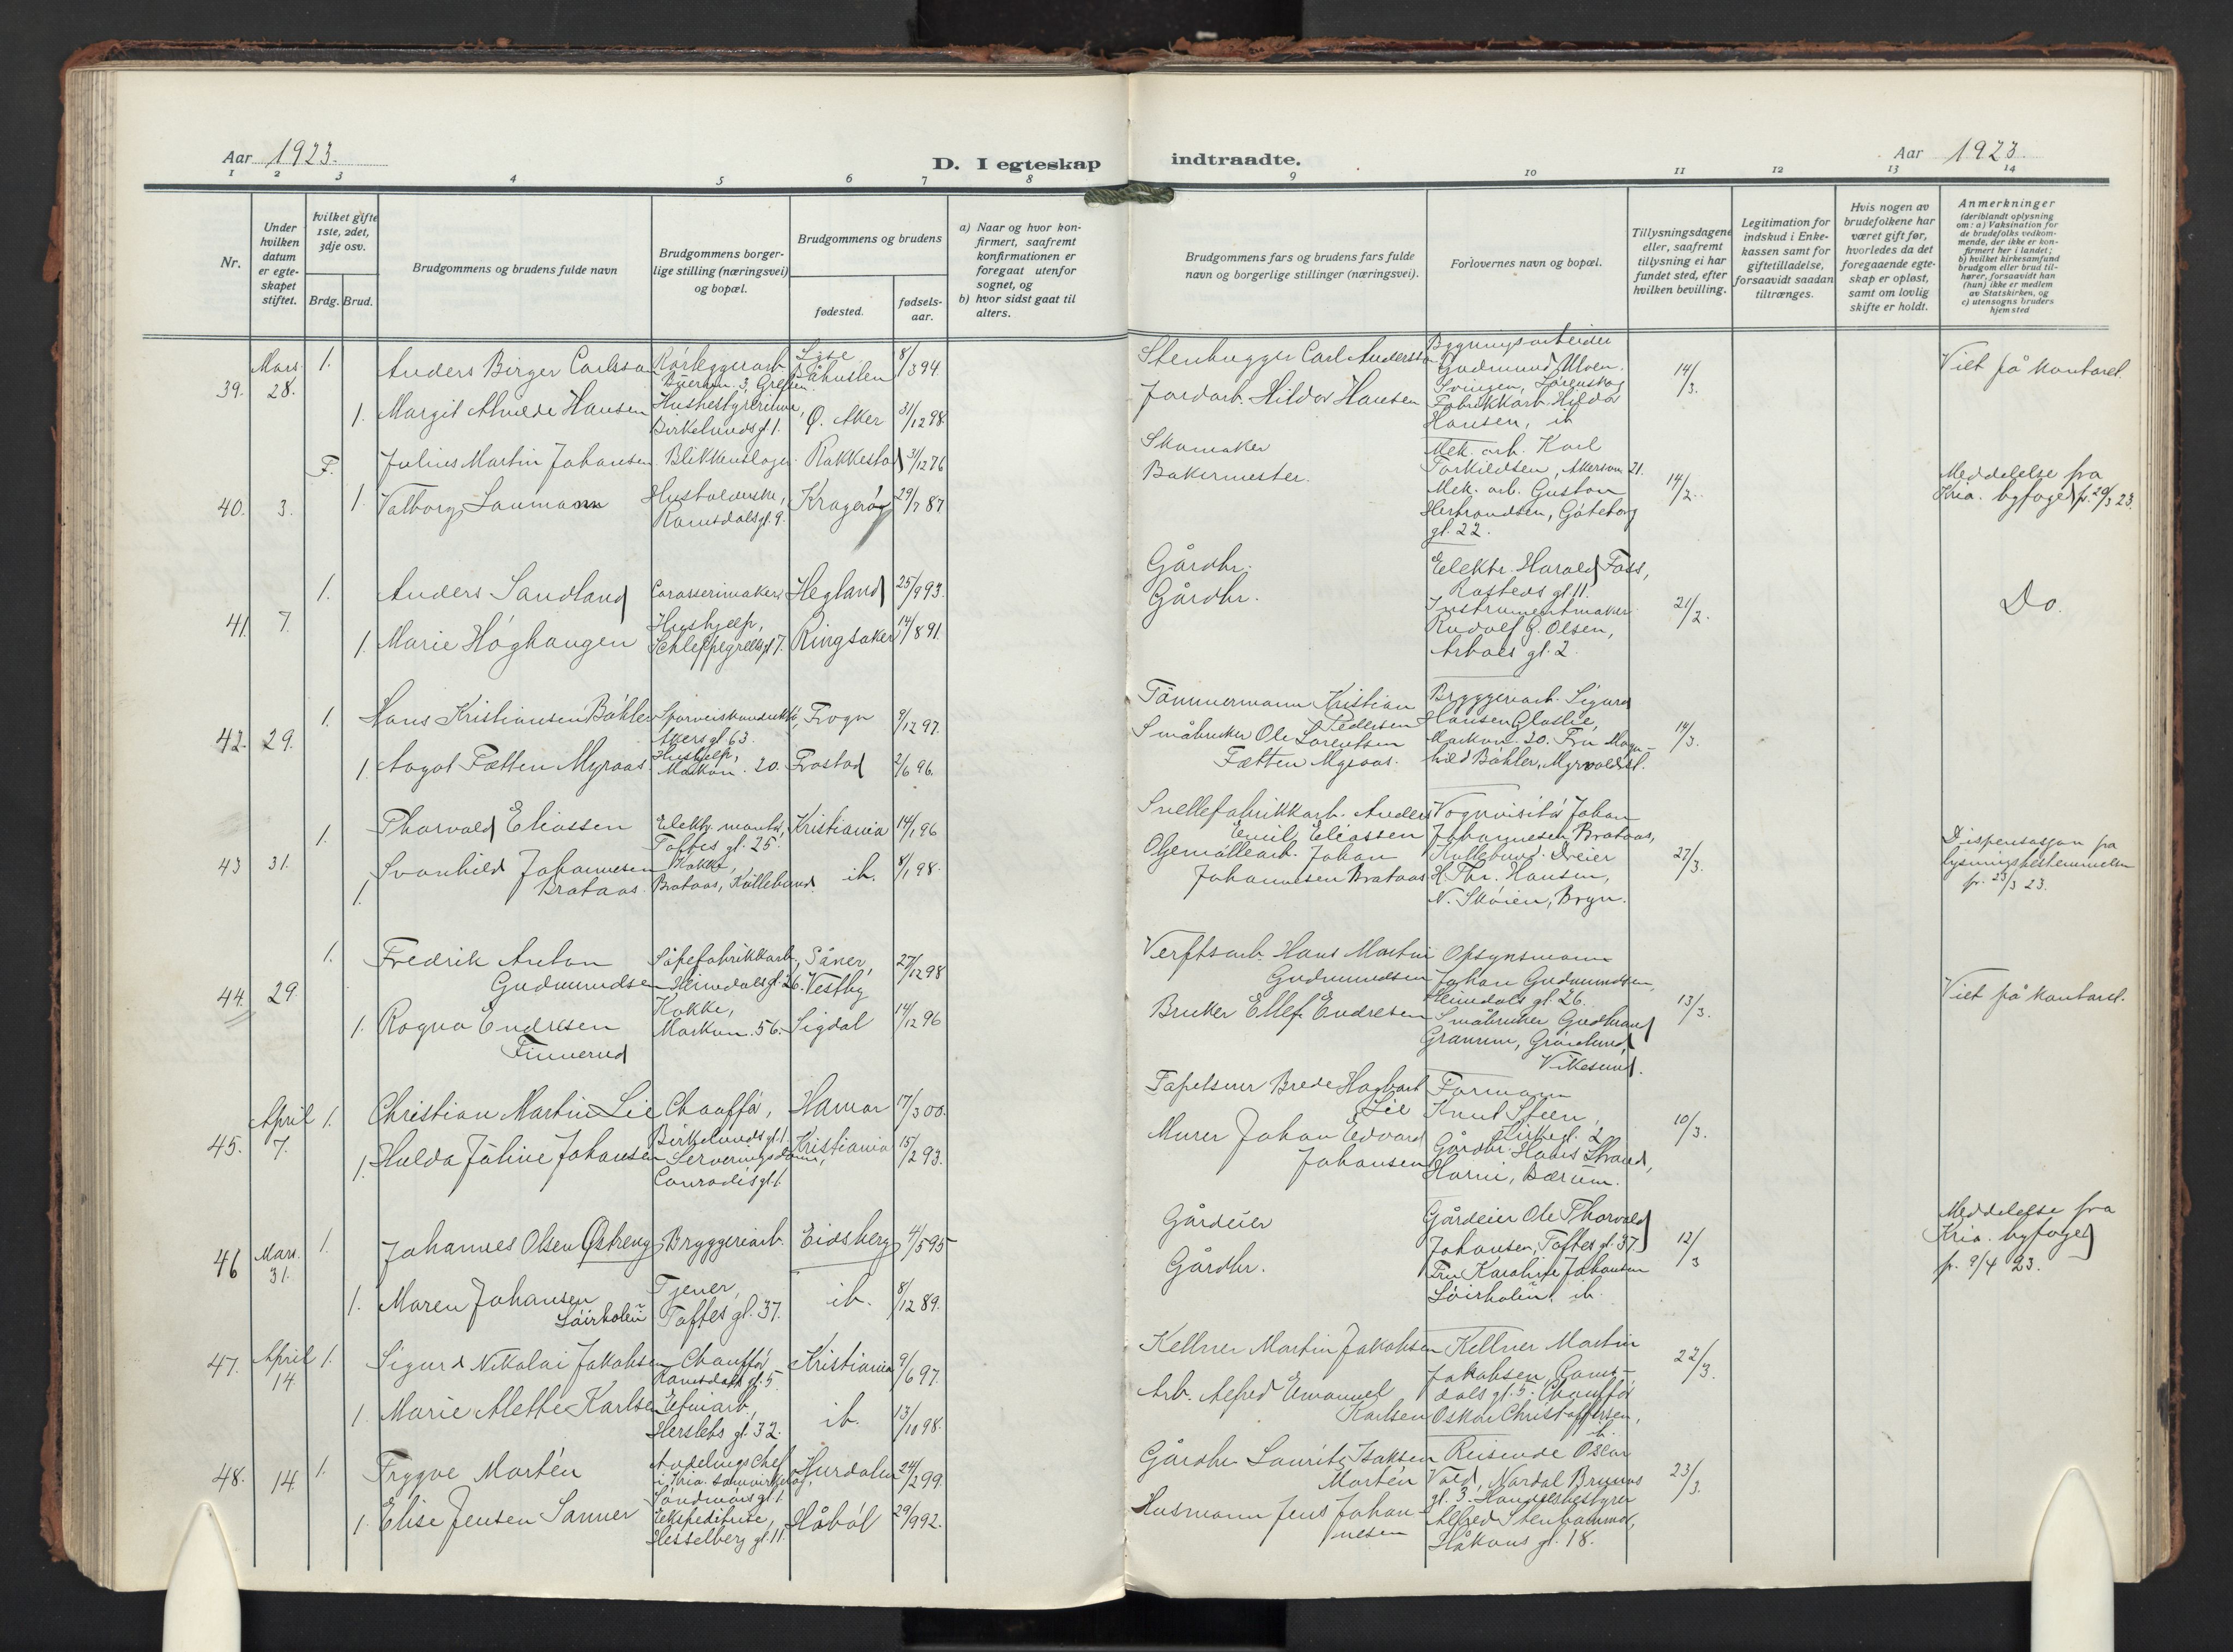 Aar 1923.
D. I egteskap
indtraadte.
Aar 1923.
1 2 3 4 5 6 7 8 9 10 11 12 13 14
Nr.
Under hvilken datum er egteskapet stiftet.
hvilket gifte 1ste, 2det, 3dje osv.
Brdg. Brud.
Brudgommens og brudens fulde navn
Brudgommens borgerlige stilling (næringsvei) og bopæl.
Brudgommens og brudens
fødested.
fødselsaar.
a) Naar og hvor konfirmert, saafremt konfirmationen er foregaat utenfor sognet, og
b) hvor sidst gaat til alters.
Brudgommens fars og brudens fars fulde navn og borgerlige stillinger (næringsvei).
Forlovernes navn og bopæl.
Tillysningsdagene eller, saafremt tillysning ei har fundet sted, efter hvilken bevilling.
Legitimation for indskud i Enkekassen samt for giftetilladelse, forsaavidt saadan tiltrænges.
Hvis nogen av brudefolkene har været gift før, hvorledes da det foregaaende egteskap er opløst, samt om lovlig skifte er holdt.
Anmerkninger (deriblandt oplysning om: a) Vaksination for de brudefolks vedkommende, der ikke er konfirmert her i landet; b) hvilket kirkesamfund brudgom eller brud tilhører, forsaavidt han (hun) ikke er medlem av Statskirken, og c) utensogns bruders hjemsted
39. Mars 28. 1. Anders Birger Carlsson Rørleggerarb. Lyse 8/3 94
Stenhugger Carl Andersson Bygningsarbeider Gudmund Ulven, Svingen, Lørenskog 14/3. Viet på kontoret.
1. Margit Alvilde Hansen Husbestyrerinne, Birkelunds gt. 1. Ø. Aker 31/12 98
Jordarb. Hildor Hansen Fabrikkarb. Hildor Hansen, ib
40. 3. F. Julius Martin Johansen Blikkenslager Rakkestad 31/12 76
Skomaker Mek. arb. Karl Torkildsen, Akersvn. 21. 14/2. Meddelelse fra Kria. byfoged fr. 20/3 23.
1. Valborg Laumann Husholderske, Ramsdalsgt. 9. Kragerø 29/7 87
Bakermester. Mek. arb. Gustav Herbrandsen, Gøteborg gt. 22.
41. 7. 1. Anders Sandland Carosserimaker, Hegland 25/9 93.
Gårdbr. Elektr. Harald Foss, Rosteds gt. 11. 21/2. Do.
1. Marie Høghaugen Hushjelp, Schleppegrells gt 7. Ringsaker 14/8 91.
Gårdbr. Instrumentmaker Rudolf G. Olsen, Arbos gt. 2.
42. 29. 1. Hans Kristiansen Bøhler Sporveiskonduktør, Akersgt. 63. Frogn 9/12 97.
Tømmermann Kristian Pedersen Bryggeriarb. Sigurd Hansen Glaslie, Markvn. 20. 14/3.
1. Aagot Fætten Myraas Hushjelp, Markvn. 20. Frostad 2/6 96.
Småbruker Ole Lorentsen Fætten Myraas. Fru Magnhild Bøhler, Myrvold st.
43 31. 1. Thorvald Eliassen Elektr. montør, Toftes gt. 25. Kristiania 14/1 96
Snellefabrikkarb. Anders Emil Eliassen Vognvisitør Johan Johannesen Brataas, Kullebund. 27/3. Dispensasjon fra lysningsbestemmelsen fr. 23/3 23.
1. Svanhild Johannesen Brataas Kokke, Brataas, Kullebund. ib. 8/1 98.
Oljemøllearb. Johan Johannesen Brataas Dreier H. Thr. Hansen, N. Skøien, Bryn.
44. 29. 1. Fredrik Anton Gudmundsen Såpefabrikkarb., Heimdalsgt. 26. Såner, Vestby 27/12 98
Verftsarb. Hans Martin Gudmundsen Opsynsmann Johan Gudmundsen, Heimdals gt. 26. 13/3. Viet på kontoret.
1. Ragna Endresen Finnerud Kokke, Markvn. 56. Sigdal 14/12 96
Bruker Ellef Endresen Småbruker Gudbrand Granum, Grønlund, Vikesund.
45. April 7. 1. Christian Martin Lie Chauffør, Birkelunds gt. 1. Hamar 17/3 00.
Tapetserer Brede Hagbart Lie Formann Knut Steen, Kirkegt. 2 10/3.
1. Hulda Jøline Johansen Serveringsdame, Conradis gt 1. Kristiania 15/2 93.
Murer Johan Edvard Johansen Gårdbr. Hans Strand, Horni, Bærum.
46 Mars. 31. 1. Johannes Olsen Østreng Bryggeriarb. Eidsberg 4/5 95
Gårdeier Gårdeier Ole Thorvald Johansen, Toftes gt. 37. 12/3 Meddelelse fra Kria. byfoged fr. 9/4 23.
1. Maren Johansen Løirholen Tjener, Toftes gt. 37. ib. 8/12 89.
Gårdbr. Fru Karoline Johansen Løirholen, ib.
47. April 14. 1. Sigurd Nikolai Jakobsen Chauffør Ramsdals gt. 5 Kristiania 9/6 97.
Kellner Martin Jakobsen Kellner Martin Jakobsen, Ramsdals gt. 5. 22/3.
1. Marie Alette Karlsen Herslebs gt. 32. ib. 13/10 98.
Arb. Alfred Emanuel Karlsen Chauffør Oskar Christoffersen, ib.
48. 14. 1. Trygve Mortén Avdelingschef i Kria. samvirkelag, Søndmørs gt. 1. Hurdalen 24/2 99.
Gårdbr. Laurits Isaksen Mortén Reisende Oscar Vold, Nordal Bruns gt. 3. 23/3.
1. Elise Jensen Sanner Ekspeditrise, Hesselberg gt. 11. Håbøl 29/9 92.
Husmann Jens Johannesen Handelsbestyrer Alfred Stenhammer, Håkons gt. 18.